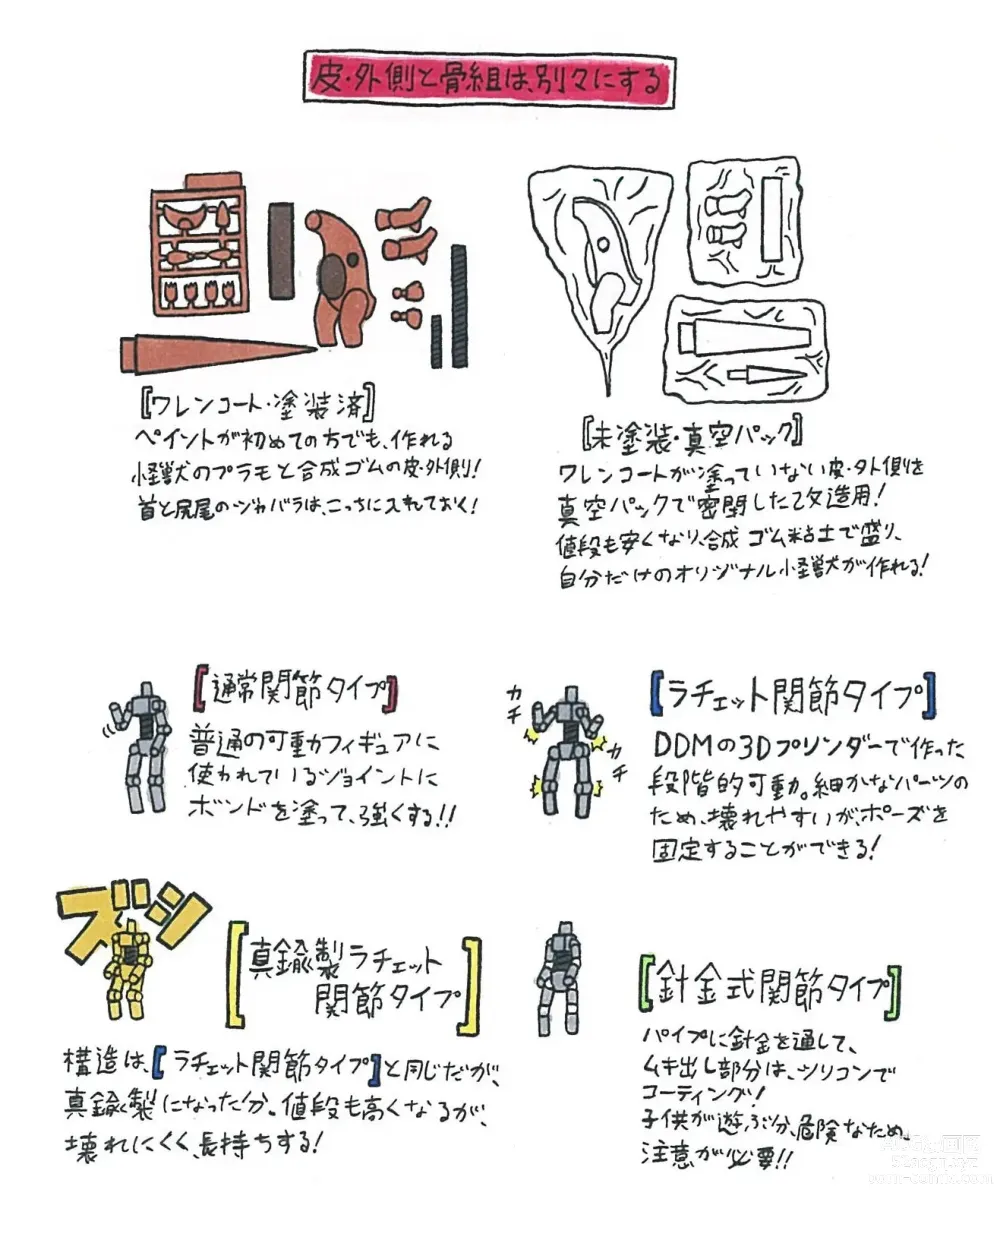 皮・外側と骨組は、別々にする
[ワレンコート・塗装済]
ペイントが初めての方でも、作れる
怪獣のプラモと合成ゴムの皮・外側!
首と尻尾のジャバラは、こっちに入れておく!
[未塗装・真空パック]
ワレンコートが塗っていない皮・外側を
真空パックで密閉した改造用!
値段も安くなり、合成ゴム粘土で盛り、
自分だけのオリジナル怪獣が作れる!
[通常関節タイプ]
普通の可動フィギュアに
使われているジョイントに
ボンドを塗って、強くする!!
カチ
カチ
[ラチェット関節タイプ]
DDMの3Dプリンダーで作った
段階的可動。細かなパーツの
ため、壊れやすいが、ポーズを
固定することができる!
ズシ
[真鍮製ラチェット
関節タイプ]
構造は、[ラチェット関節タイプ]と同じだが、
真鍮製になった分。値段も高くなるが、
壊れにくく、長持ちする!
[針金式関節タイプ]
パイプに針金を通して、
ムキ出し部分は、シリコンで
コーティング!
子供が遊ぶ分、危険なため、
注意が必要!!